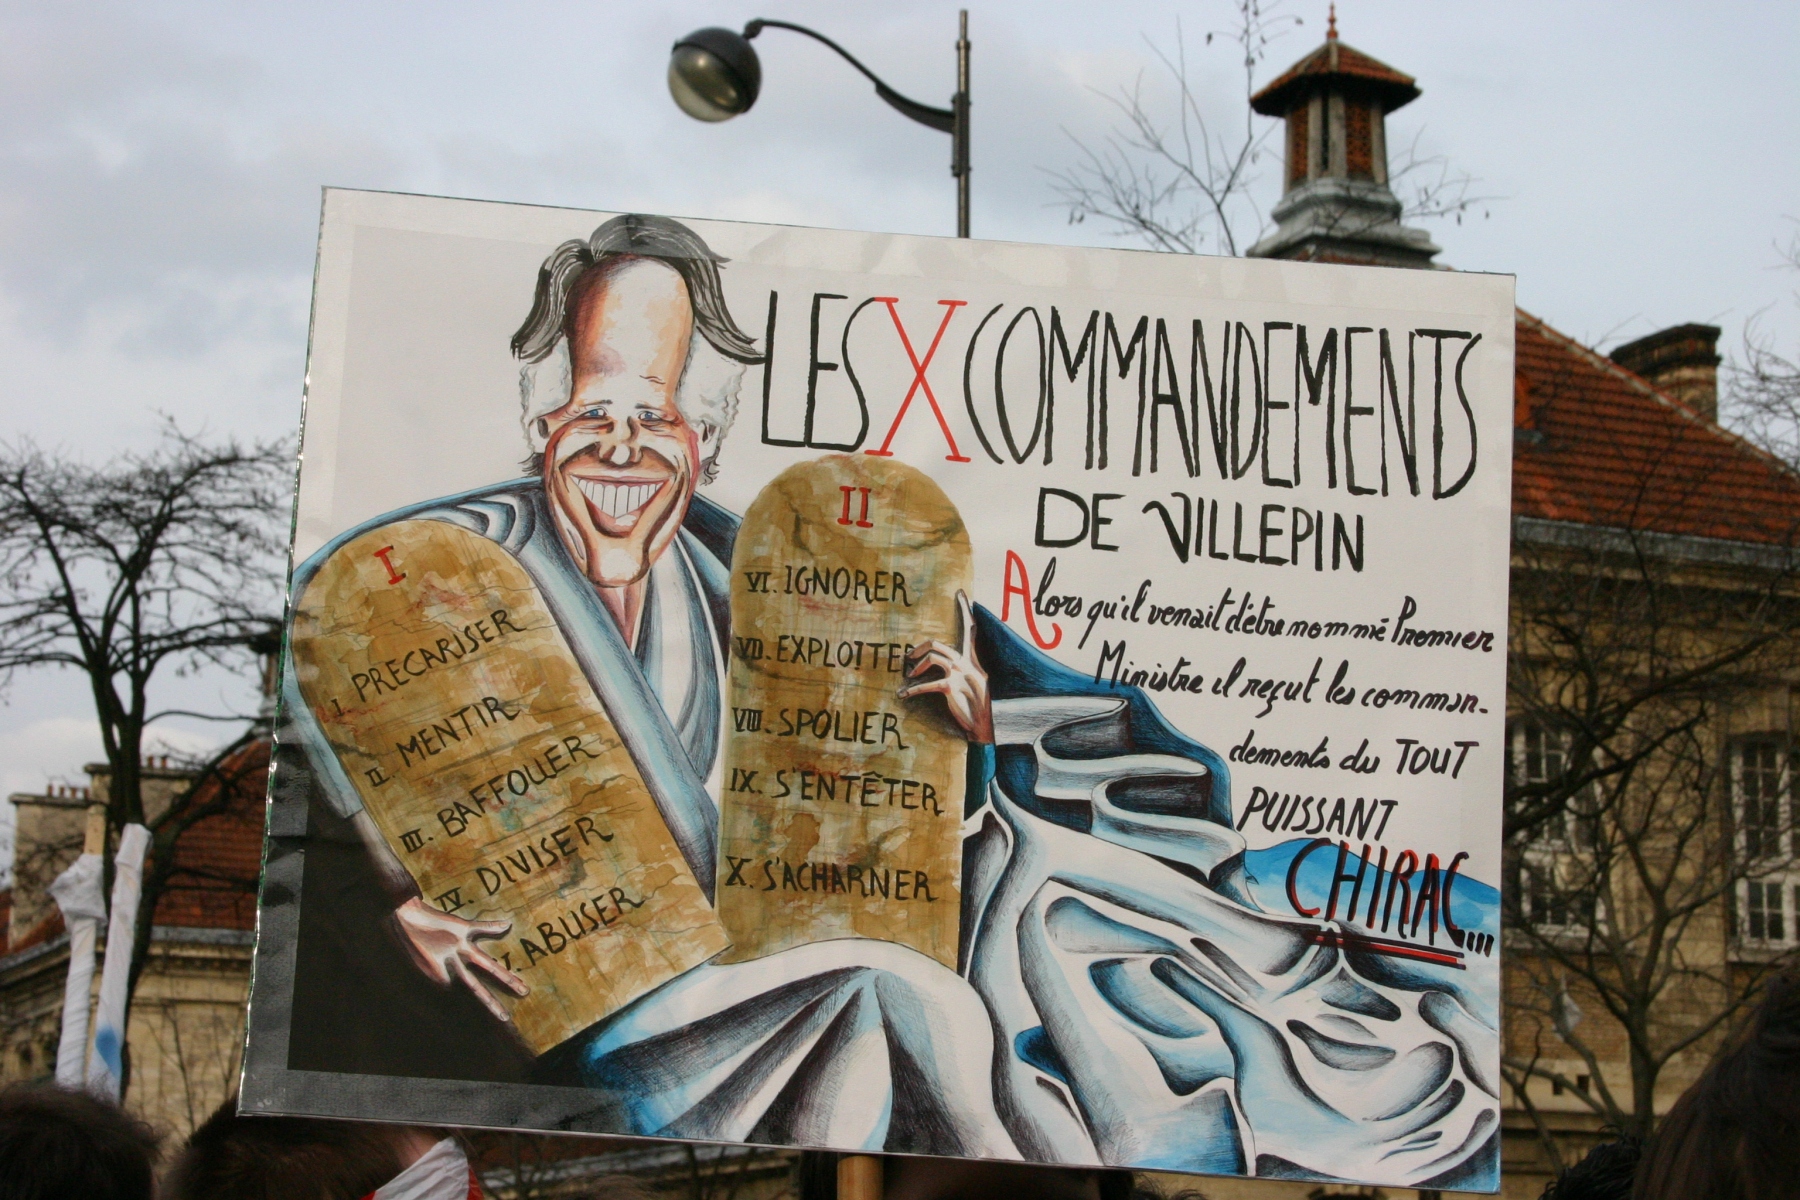 LES X COMMANDEMENTS
DE VILLEPIN
Alors qu'il venait d'être nommé Premier
Ministre il reçut les comman-
dements du TOUT
PUISSANT
CHIRAC....
I
I. PRECARISER
II. MENTIR
III. BAFFOUER
IV. DIVISER
V. ABUSER
II
VI. IGNORER
VII. EXPLOITER
VIII. SPOLIER
IX. S'ENTÊTER
X. S'ACHARNER